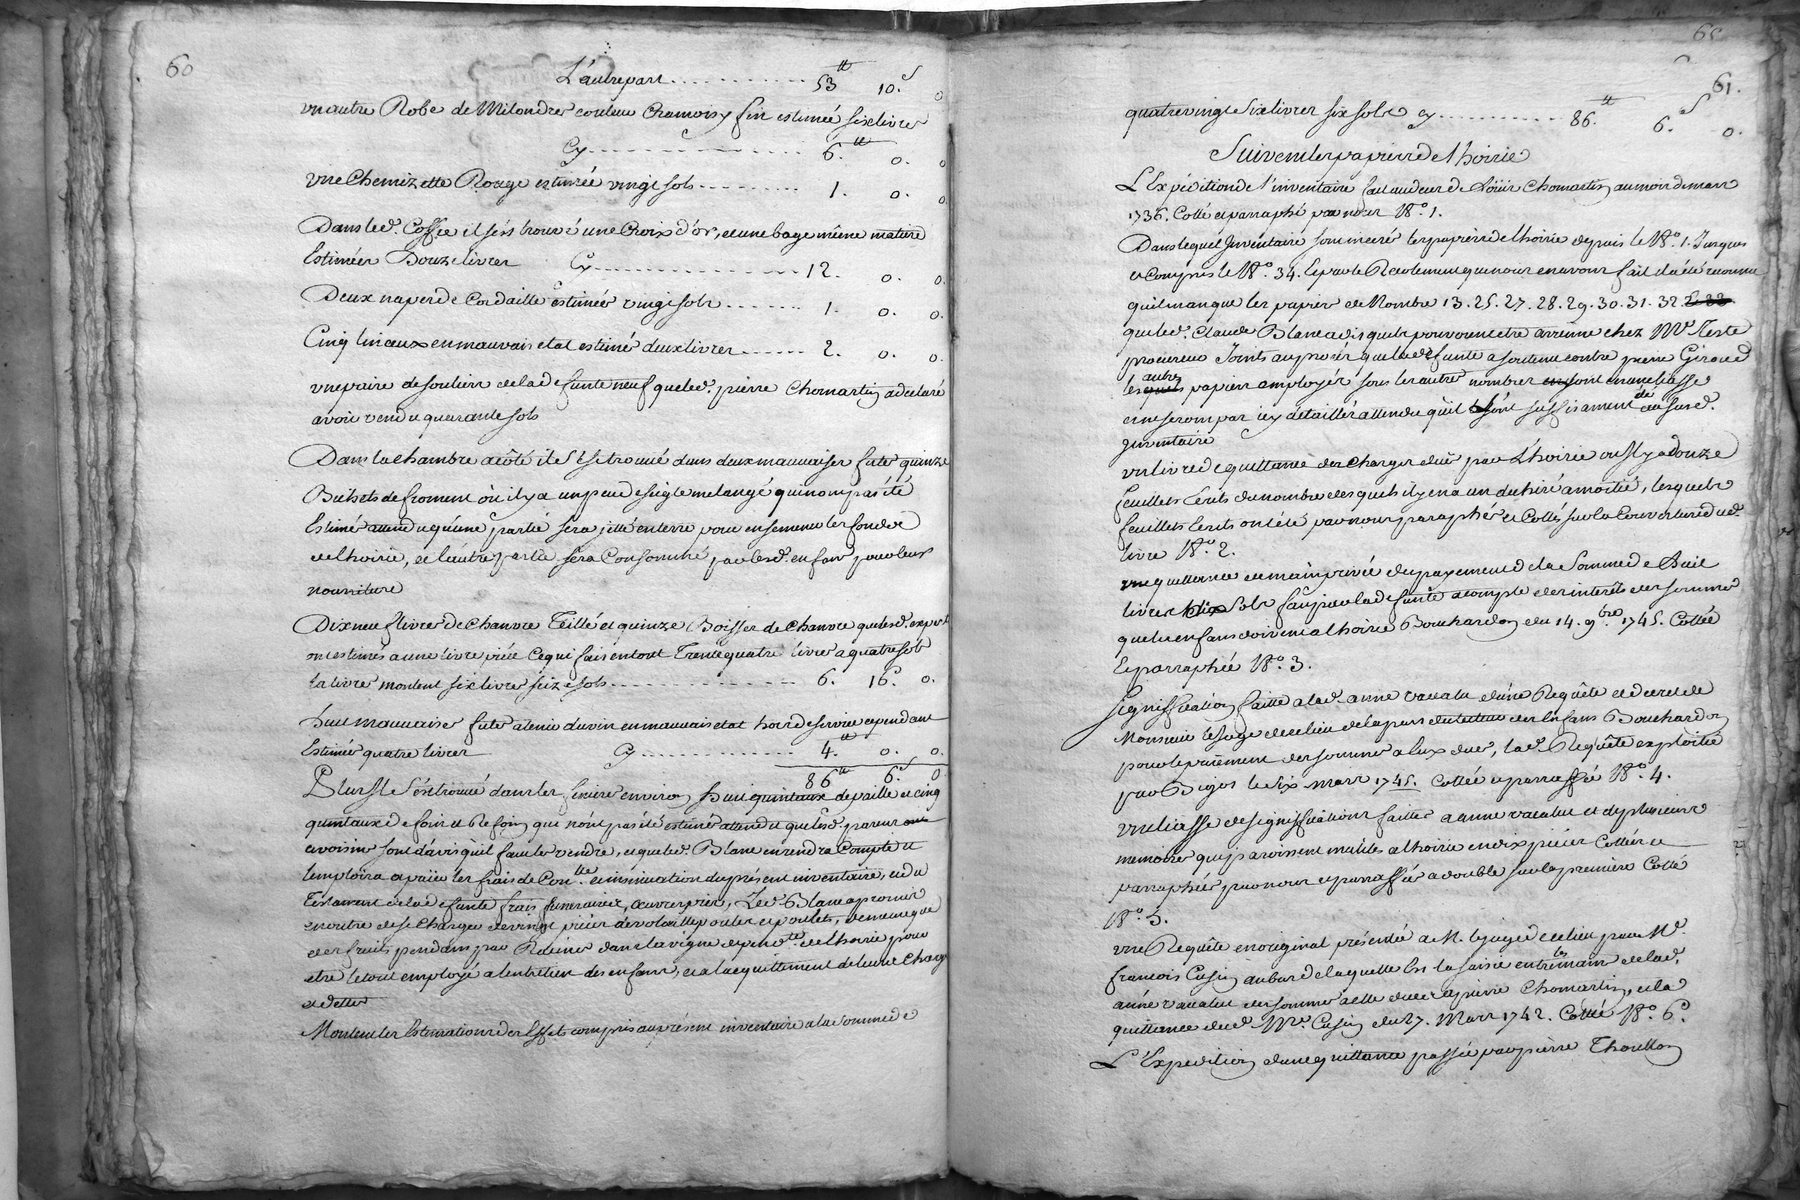 60
L'autrepart .......... 53tt 10.s 0
un autre Robe de Milondres couleur Cramoisy fin estimée six livres
Cy .......... 6.tt 0. 0
une Chemizette Rouge estimée vingt sols .......... 1. 0. 0
Dans led. Coffre il s'est trouvé une Croix d'or, et une bage même mature
Estimées Douze livres Cy .......... 12. 0. 0.
Deux napes de Cordaille estimées vingt sols .......... 1. 0. 0.
Cinq linceux en mauvais etat estimés deux livres .......... 2. 0. 0.
une paire de souliers de lade funte neuf que led. pierre Chomartin a declaré
avoir vendu quarante sols
Dans la Chambre a côté il s'est trouvé dans deux mauvaises futes quinze
Bichets de froment où il y a un peu de seigle melangé qui n'ont pas été
Estimé attendu qu'une partie sera jetté en terre pour ensemencer les fonds
de l'hoirie, et l'autre partie sera Consommé par lesd. enfans pour leur
nourriture
Dix neuf livres de Chanvre Teillé et quinze de Chanvre que lesd. experts
ont estimés a une livre piece Ce qui fais en tout Trente quatre livres a quatre sols
la livre montent six livres seize sols .......... 6. 16.s 0.
huit mauvaises futes a tenir du vin en mauvais etat hors de service cependant
Estimés quatre livres Cy .......... 4.tt 0. 0.
86tt 6.s 0
Plus Il s'est trouvé dans les feniere environ huit quintaux de paille et cinq
quintaux de foin et Refoin qui n'ont pas été estimé attendu que lesd. parens
et voisins sont d'avis qu'il faut les vendre, et que led. Blanc en rendra Compte et
l'emploira a paier les frais de Con.tte et insinuation du présent inventaire, et du
Testament de lad. defunte frais funeraires, œuvres pies, Led. Blanc a promis
en outre de se Charger de vingt pieces de volaille poules et poulets, de meme que
des fruits pendans par Racines dans la vigne de l'hoirie pour
etre le tout employé a l'entretien des enfans, et a l'acquittement de leurs Charges
et dettes
Montent les Estimations des Effets compris au présent inventaire a la somme de
61.
quatre vingt six livres six sols cy .......... 86.tt 6.s 0.
Suivent les papiers de l'hoirie
L'Expédition de l'inventaire fait au deces de Loüis Chomartin au mois de mars
1736. Cotté et parraphé par nous N.o 1.
Dans lequel Inventaire sont inseré les papiers de l'hoirie depuis le N.o 1. Jusques
et Compris le N.o 34. Et par le Recolement que nous en avons fait il a été reconnu
qu'il manque les papiers de Nombre 13. 25. 27. 28. 29. 30. 31. 32.
que led. Claude Blanc a dis qu'ils pouvoient etre chez M.e Teste
procureur Joints au procés que lad. defunte a soutenu contre pierre Giroud
les autres papiers employés sous les autres nombres sont en une liasse
et ne seront par icy detaillés attendu qu'il sont suffisament de au susd.
Inventaire
un livre de quittance des Charges deües par L'hoirie ou Il y a douze
feuillets Ecrits du nombre desquels il y en a un dechiré a moitié, lesquels
feuillets Ecrits ont été par nous paraphés et Cottés sur la Couverture dud.
livre N.o 2.
une quittance de main privée de payement de la Somme de
livres dix Sols fait par lad. defunte a compte des interêts des sommes
que les enfans doivent a l'hoirie Bouchardon du 14. 9.bre 1745. Cottée
Et parraphée N.o 3.
Signiffication faitte a lad. anne d'une Requête et decret de
Monsieur le Juge de ce lieu de la part du tuteur des Enfans Bouchardon
pour le paiement des sommes a Eux dues, lad. Requête exploitée
par Bigot le six mars 1745. Cottée et parraffée N.o 4.
une liasse de signiffications faittes a anne et de plusieurs
memoires qui paroissent inutiles a l'hoirie en dix piéces Cottées et
parraphées par nous et parraffée a double sur la premiére Cotté
N.o 5.
une Requête en original présentée a M. le juge de ce lieu par M.e
francois Cusin au bas de laquelle Est la saisie entre les mains de lad.
anne des sommes a elle dues et pierre Chomartin, et la
quittance dud. M.e Cusin du 27. Mars 1742. Cottée N.o 6.o
L'Expedition d'une quittance passée par pierre Thoullon